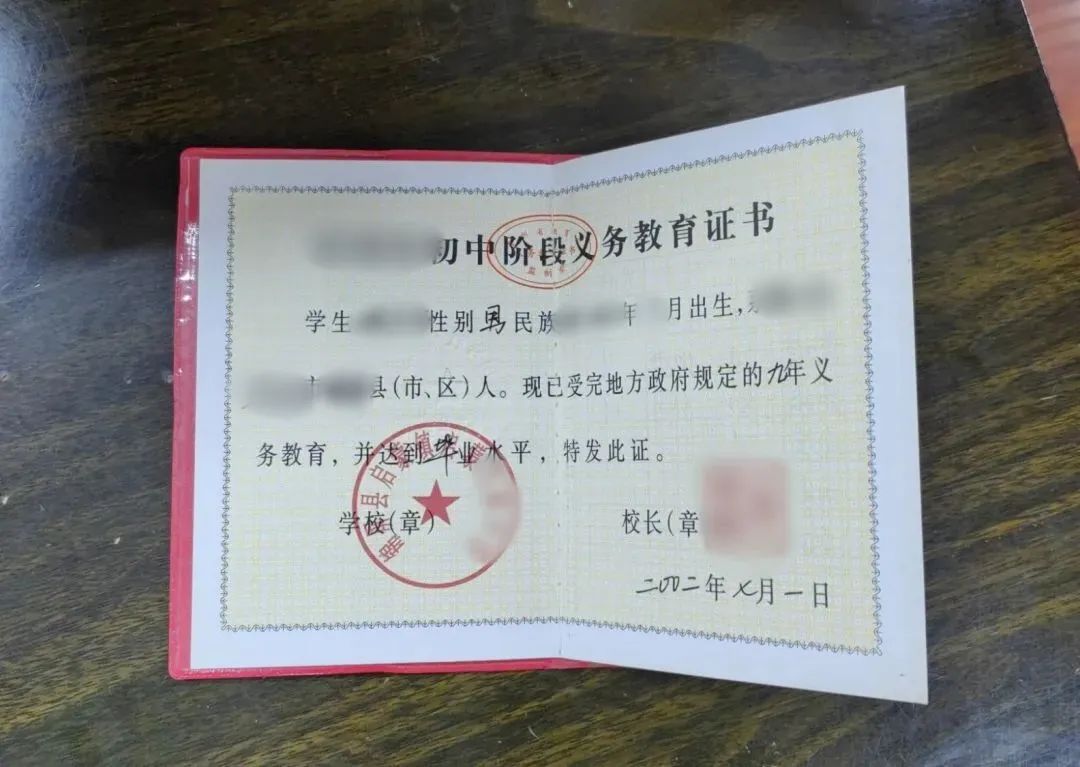 初中阶段义务教育证书
学生 性别男民族 年 月出生，
县(市、区)人。现已受完地方政府规定的九年义
务教育，并达到毕业水平，特发此证。
学校(章) 校长(章
二00二年七月一日